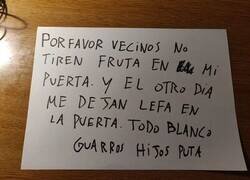 POR FAVOR VECINOS NO
TIREN FRUTA EN MI
PUERTA. Y EL OTRO DIA
ME DEJAN LEFA EN
LA PUERTA. TODO BLANCO
GUARROS HIJOS PUTA